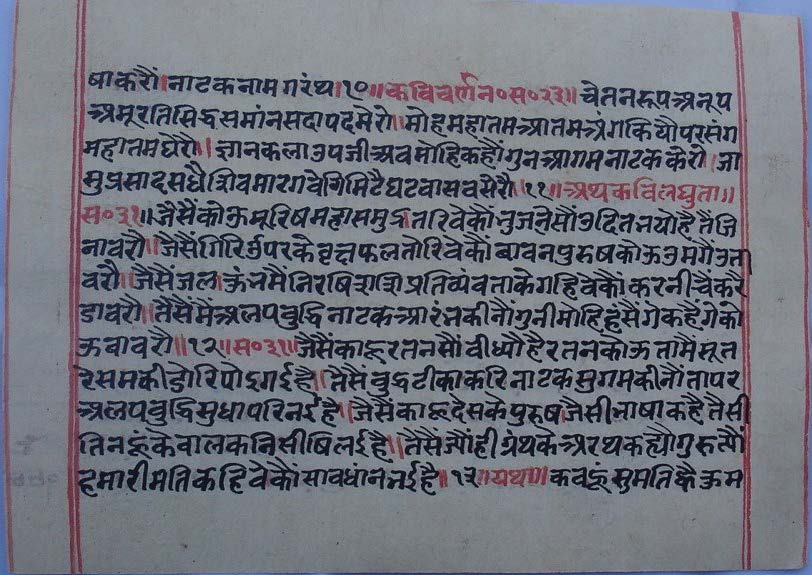 षाकरौं॥नाटकनामगरंथ॥१०॥कविवर्णन०स०२३॥चेतनरूपअनूप
अमूरतिसिद्धसमांनसदापदमेरो॥मोहमहातमआतमअंगकियौपरसंग
महातमघेरौ॥ज्ञानकलाउपजीअवमोहिकहौंगुनआगमनाटककेरो॥जा
सुप्रसादसधैशिवमारगवेगिमिटैघटवासवसेरौ॥११॥अथकविलघुता॥
स०३१॥जैसैंकोऊमूरिषमहासमुद्रतरिवेकौंभुजनिसौंउदितभयोहैतजि
नावरौ॥जैसैंगिरिऊपरकैवृक्षफलतोरिवेकौंबावनपुरुषकोऊउमंगैंउता
वरौ॥जैसैंजलकुंभमैंनिरषिशशिप्रतिव्यंबताकेगहिवेकौंकरनीचैंकरै
डावरौ॥तैसैंमैंअलपवुद्धिनाटकआरंभकीनौंगुनीमोहिहंसैंगेकहैंगेको
ऊबावरौ॥१२॥स०३१॥जैसैंकाहूरतनसौंवीध्यौहैरतनकोऊतामैंसूत
रेसमकीडोरिपोइगईहै॥तैसैंवुद्धटीकाकरिनाटकसुगमकीनौंतापर
अलपवुद्धिसुधापरिनईहै॥जैसैंकाहूदेसकेपुरुषजैसीभाषाकहैतैसी
तिनहूंकेवालकनिसीषिलईहै॥तैसैंज्यौंहीग्रंथकेअरथकह्यौगुरुत्यौं
हमारीमतिकहिवेकौंसावधांनभईहै॥१३॥अथ॥कवहूंसुमतिकैऊम